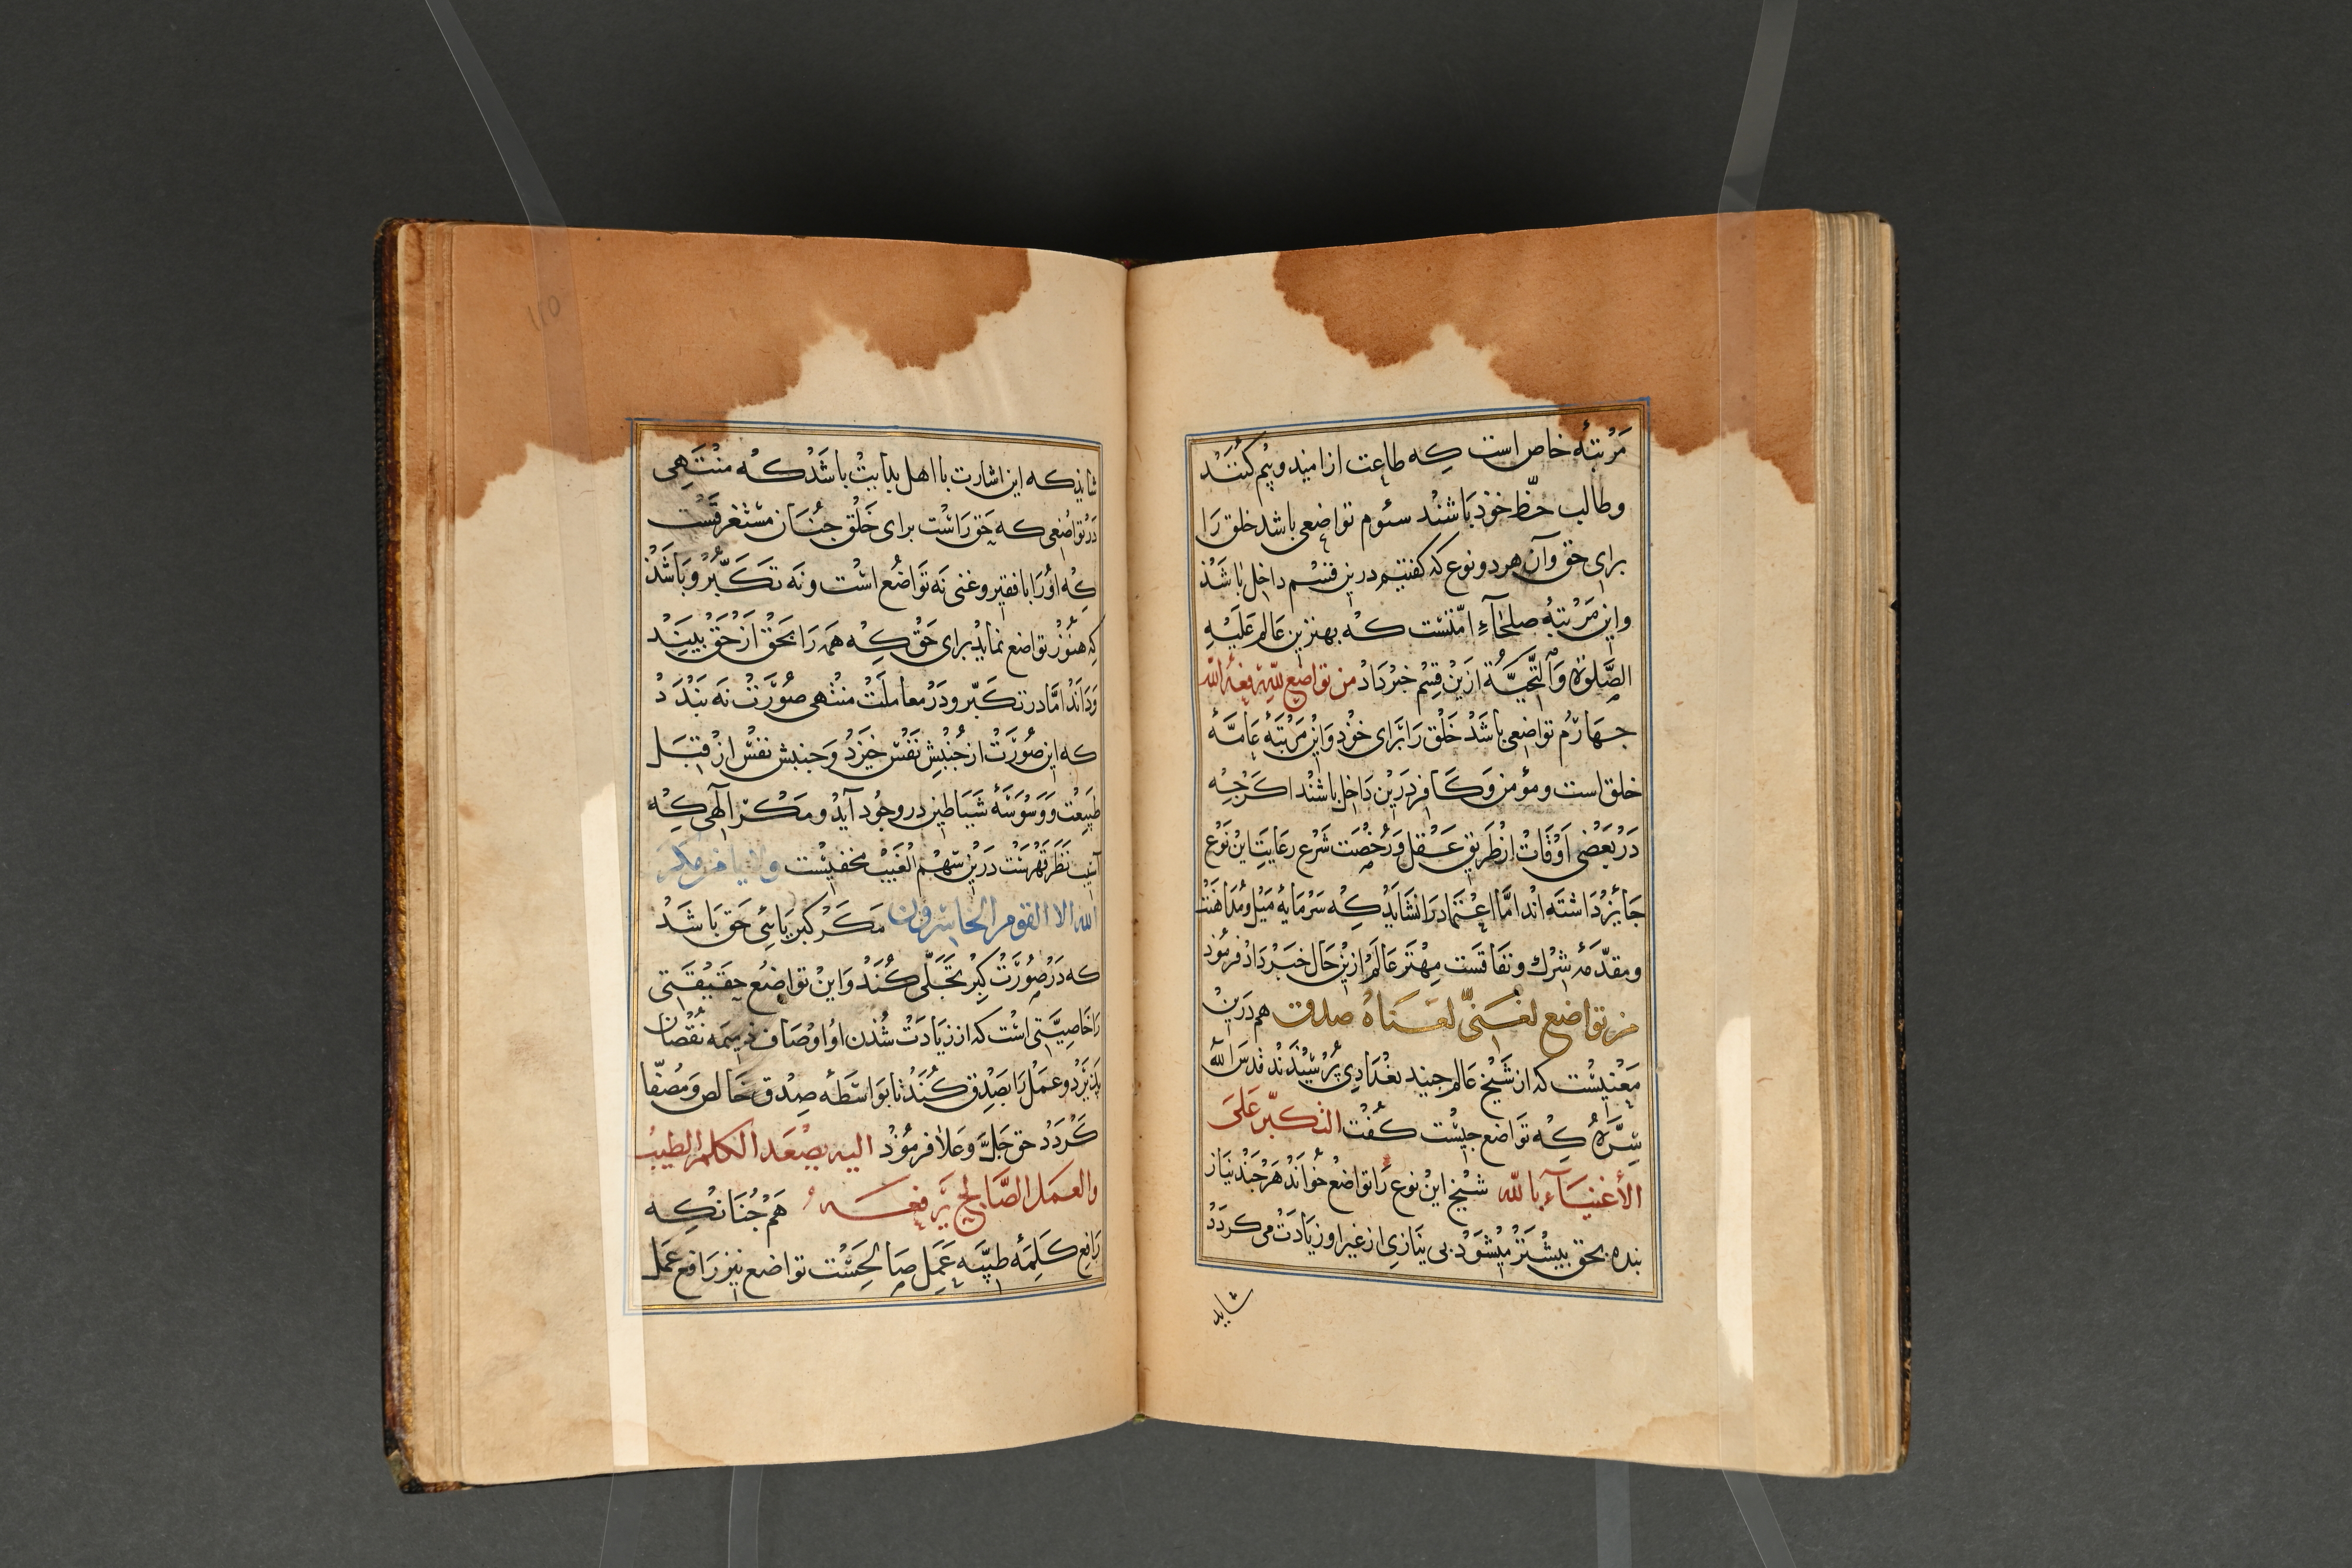 مَرْتبَهٔ خاص است کِه طاعت از امید و بیْم کُنَنْد
و طالب حَظِّ خوذ بَاشَنْد سئوم تواضعی باشد خلق رَا
برای حق و آن هر دو نوع که کفتیم درین قسْم داخِل بَاشَذ
و این مَرْتبَهٔ صلحَآءِ امّتسْت کِه بهترین عَالم عَلَیْهِ
الصَّلوٰة وَالتَّحِیَّة ازین قِسْم خبَر دَاد من تواضع لله رفعهُ الله
جهَارُم تواضعی باشَذ خَلْق رَا بَرای خوْد وَاین مَرْتبَهٔ عَامَّهٔ
خلق است و مؤمن وَکَافِر دَرین دَاخِل باشنْد اکَرْجِه
دَرْ بَعْضی اَوْقَاتْ ازْ طَریق عَقل وَرُخْصَت شَرْع رعَایَتِ این نَوْع
جَایزْ دَاشتَه اند امَّا اعتمَاد رَا نشَایَذ کِه سَرْمَایهٔ مَیْل و مُدَاهَنت
و مقدّمهٔ شِرْك و نفَاقَست مِهْتَر عَالَمْ ازین حَال خبَرْ دَاد فرمُوذ
من تواضع لغَنیّ لغنَاهُ صدق هم دَرین
مَعْنیسْت که از شَیْخ عَالم جنید بغْدَادِی پُرْسِیْذَنْد قدسَ الله
سِرَّهُ کِه تَوَاضع جیسْت کُفْت التکبّر عَلیَ
الأغنیَآءِ بالله شیْخ این نوع رَا تواضُع خوَانَدْ هَرْجَنْد نیَاز
بنده بحق بیشْتَر میْشَوَدْ بی نیَازِی از غیر او زیَادَتْ می کردَدْ
شاید
شایذ که این اشارت با اهل بدایتْ باشَذْ کِه منْتَهِی
دَرْ تواضعی که حَق رَاسْت برای خَلْق جنَان مسْتغرقَسْت
کِه اوُرَا با فقیر و غنی نَه تَوَاضُع اسْت و نَه تَکَبّرُ و بَاشَذْ
کِه هنُوْزْ تواضع نمایَذ برای حَقْ کِه همَه رَا بحَقْ ازْ حَقْ بینَدْ
وَدَانَدْ امَّا در تکَبّر و دَرْ معَاملَتْ منْتهی صُورَتْ نَه بَنْدَدْ
که این صُورَتْ از جُنْبِش نَفْسْ خِیْزَدْ وَ جنبش نفسْ ازْ قِبَل
طَبِیْعَت وَ وَسْوَسَهٔ شَیَاطِین در وجُود آیَذ و مَکْرِ الٰهی کِه
آسِیْب نَظَر قَهْرَسْت دَرین سَهْم الْغَیْب مخفیْسْت ولا یامن مکر
الله الا القوم الخاسرون مَکَرْ کبْریَائی حَق بَاشَدْ
که دَرْ صُوْرَتْ کِبْر تجَلّی کُنَدْ وَاینْ تواضُع حَقیْقَتی
رَا خَاصِیَّتی اسْت که از زیَادَتْ شُدَن او اوْصَاف ذمیمَه نُقْصَان
پذیْرَدْ و عمَلْ رَا بَصِدْق کُنَدْ تا بَوَاسَطَه صِدْق خَالص وَ مُصَفّا
کَرْدَدْ حق جَلَّ وَعَلَا فرمُوْذْ الیه یصْعَد الکلم الطیبُ
والعمَل الصَّالح یَرفعَهُ هَمْ جُنَانْکِه
رَافِع کَلِمَهٔ طیّبَه عَمَل صَالِحَسْت تواضع نیز رَافع عَمَل
110